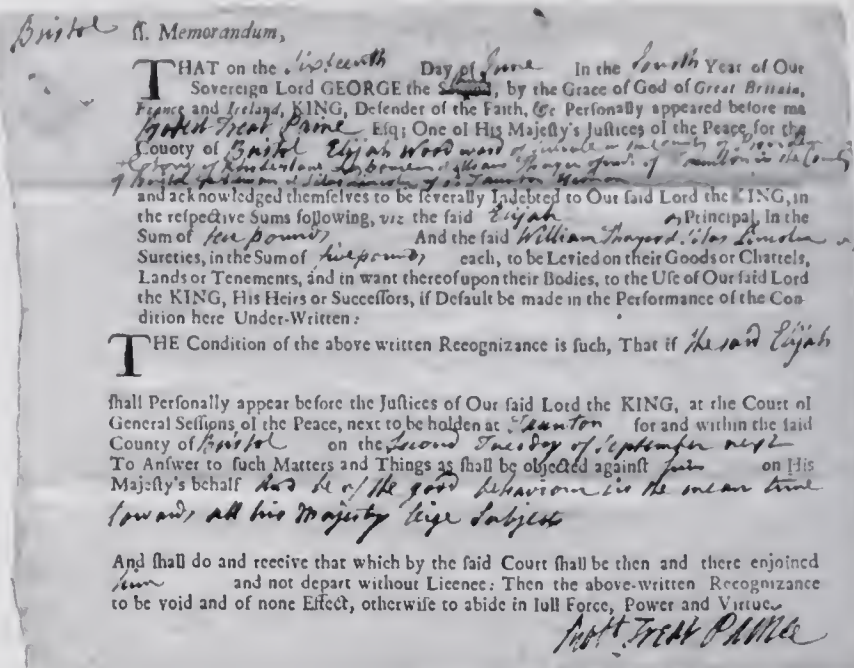 Bristol ss. Memorandum,
THAT on the Sixteenth Day of June In the fourth Year of Our
Sovereign Lord GEORGE the , by the Grace of God of Great Britain,
France and Ireland, KING, Defender of the Faith, &c Perſonally appeared before me
Robert Treat Paine Eſq; One of His Majeſty's Juſtices of the Peace for the
County of Bristol Elijah Woodward of in the County of
& Colony of William Thayer of Taunton in the County
of Bristol & Silas Lincoln of Taunton
and acknowledged themſelves to be ſeverally Indebted to Our ſaid Lord the KING, in
the reſpective Sums following, viz the ſaid Elijah as Principal, In the
Sum of ten pounds And the ſaid William Thayer & Silas Lincoln as
Sureties, in the Sum of five pounds each, to be Levied on their Goods or Chattels,
Lands or Tenements, and in want thereof upon their Bodies, to the Uſe of Our ſaid Lord
the KING, His Heirs or Succeſſors, if Default be made in the Performance of the Con
dition here Under-Written:
THE Condition of the above written Recognizance is ſuch, That if the said Elijah
ſhall Perſonally appear before the Juſtices of Our ſaid Lord the KING, at the Court of
General Seſſions of the Peace, next to be holden at Taunton for and within the ſaid
County of Bristol on the Second Tuesday of September next
To Anſwer to ſuch Matters and Things as ſhall be objected againſt him on His
Majeſty's behalf and be of the good behaviour in the mean time
towards all his Majesty leige Subjects
And ſhall do and receive that which by the ſaid Court ſhall be then and there enjoined
him and not depart without Licence: Then the above-written Recognizance
to be void and of none Effect, otherwiſe to abide in full Force, Power and Virtue.
Robt Treat Paine